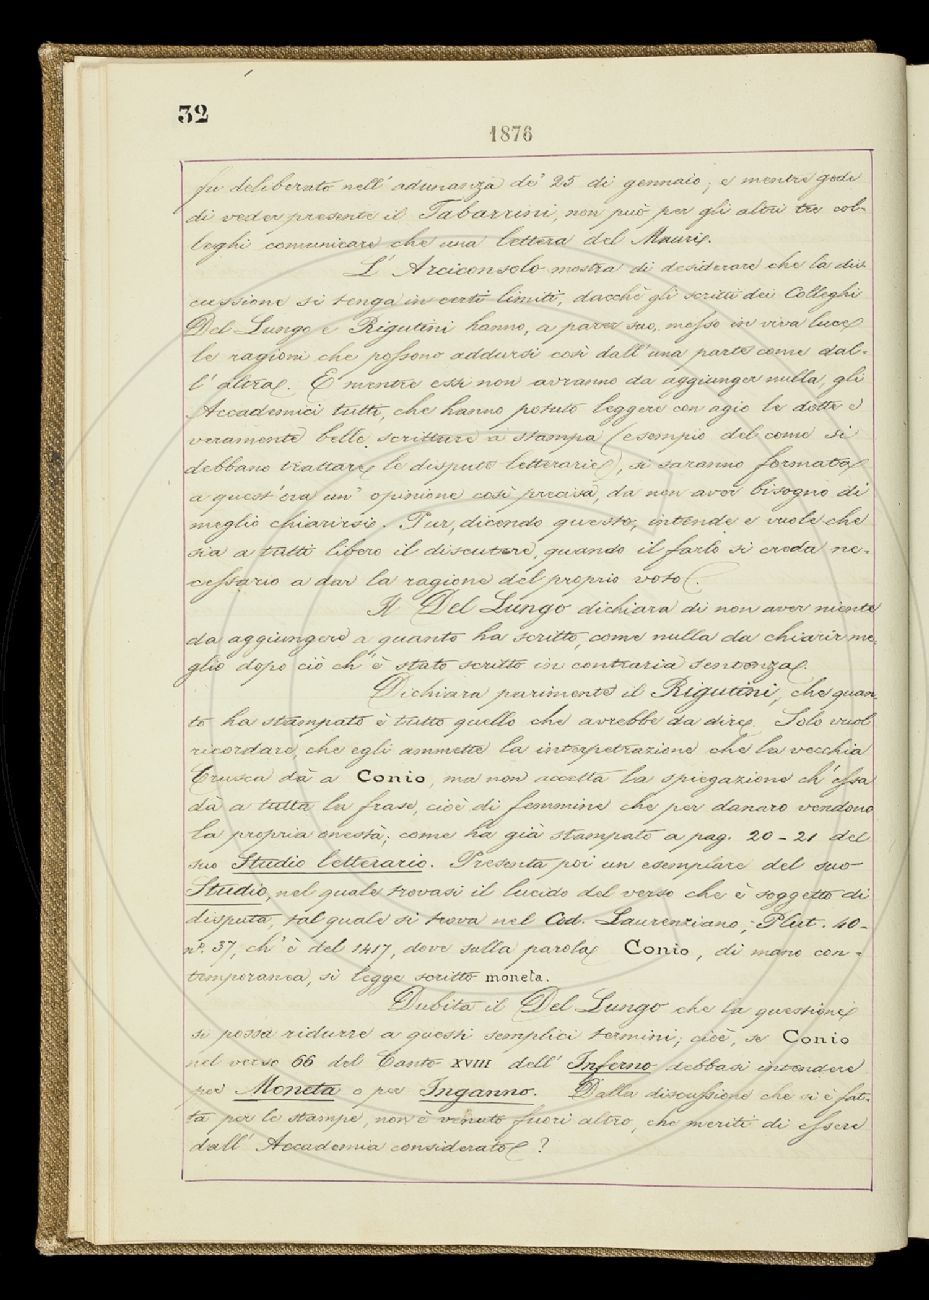 32
1876
fu deliberato nell' adunanza de' 25 di gennaio; e mentre gode
di veder presente il Tabarrini, non può per gli altri tre col-
leghi comunicare che una lettera del Mauri.
L' Arciconsolo mostra di desiderare che la dis-
cussione si tenga in certi limiti, dacchè gli scritti dei Colleghi
Del Lungo e Rigutini hanno, a parer suo, messo in viva luce
le ragioni che possono addursi così dall' una parte come dal-
l' altra. E mentre essi non avranno da aggiunger nulla, gli
Accademici tutti, che hanno potuto leggere con agio le dotte e
veramente belle scritture a stampa (esempio del come si
debbano trattare le dispute letterarie), si saranno formata
a quest' ora un' opinione così precisa, da non aver bisogno di
meglio chiarirsi. Pur, dicendo questo, intende e vuole che
sia a tutti libero il discutere, quando il farlo si creda ne-
cessario a dar la ragione del proprio voto.
Il Del Lungo dichiara di non aver niente
da aggiungere a quanto ha scritto, come nulla da chiarir me-
glio dopo ciò ch' è stato scritto in contraria sentenza.
Dichiara parimente il Rigutini, che quan-
to ha stampato è tutto quello che avrebbe da dire. Solo vuol
ricordare che egli ammette la interpetrazione che la vecchia
Crusca dà a Conio, ma non accetta la spiegazione ch' essa
dà a tutta la frase, cioè di femmine che per danaro vendono
la propria onestà; come ha già stampato a pag. 20-21 del
suo Studio letterario. Presenta poi un esemplare del suo
Studio, nel quale trovasi il lucido del verso che è soggetto di
disputa, tal quale si trova nel Cod. Laurenziano, Plut. 40-
n.° 37, ch' è del 1417, dove sulla parola Conio, di mano con-
temporanea, si legge scritto moneta.
Dubita il Del Lungo che la questione
si possa ridurre a questi semplici termini; cioè, se Conio
nel verso 66 del Canto XVIII dell' Inferno debbasi intendere
per Moneta o per Inganno. Dalla discussione che si è fat-
ta per le stampe, non è venuto fuori altro, che meriti di essere
dall' Accademia considerato?